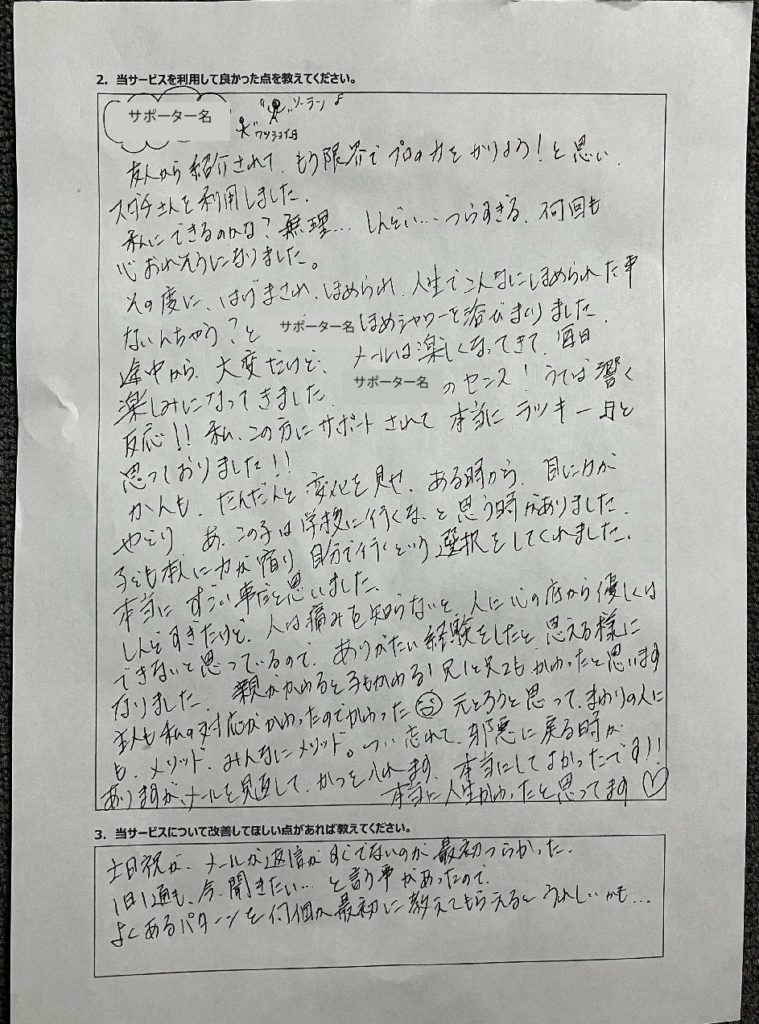 2. 当サービスを利用して良かった点を教えてください。
サポーター名
"ソーラン♪
友人から紹介されて、もう限界でプロの力をかりよう!と思い、
スダチさんを利用しました。
私にできるのかな?無理… しんどい… つらすぎる、何回も
心おれそうになりました。
その度に、はげまされ、ほめられ、人生でこんなにほめられた事
ないんちゃう?と サポーター名 ほめシャワーを浴びまくりました。
途中から、大変だけど、メールは楽しくなってきて、毎日
楽しみになってきました。 サポーター名 のセンス!うてば響く
反応!!私、この方にサポートされて本当にラッキー
思っておりました!!
かんも、だんだんと変化を見せ、ある時から、目に力が
やどり、あ、この子は学校に行くな、と思う時がありました。
子ども本人に力が宿り、自分で行くという選択をしてくれました。
本当にすごい事だと思いました。
しんどすぎたけど、人は痛みを知らないと、人に心の底から優しくは
できないと思っているので、ありがたい経験をしたと思える様に
なりました。親がかわると子もかわる!兄1と兄2もかわったと思います
主人も私の対応がかわったのでかわった 元とろうと思って、まわりの人に
も、メソッド、みんなにメソッド。つい忘れて、邪悪に戻る時が
ありますが、メールを見直して、かつを入れます、本当にしてよかったです!!
本当に人生かわったと思ってます♡
3. 当サービスについて改善してほしい点があれば教えてください。
土日祝が、メールが返信がすぐでないのが最初つらかった。
1日1通も、今、聞きたい… と言う事があったので、
よくあるパターンを何個か最初に教えてもらえるとうれしいかも…